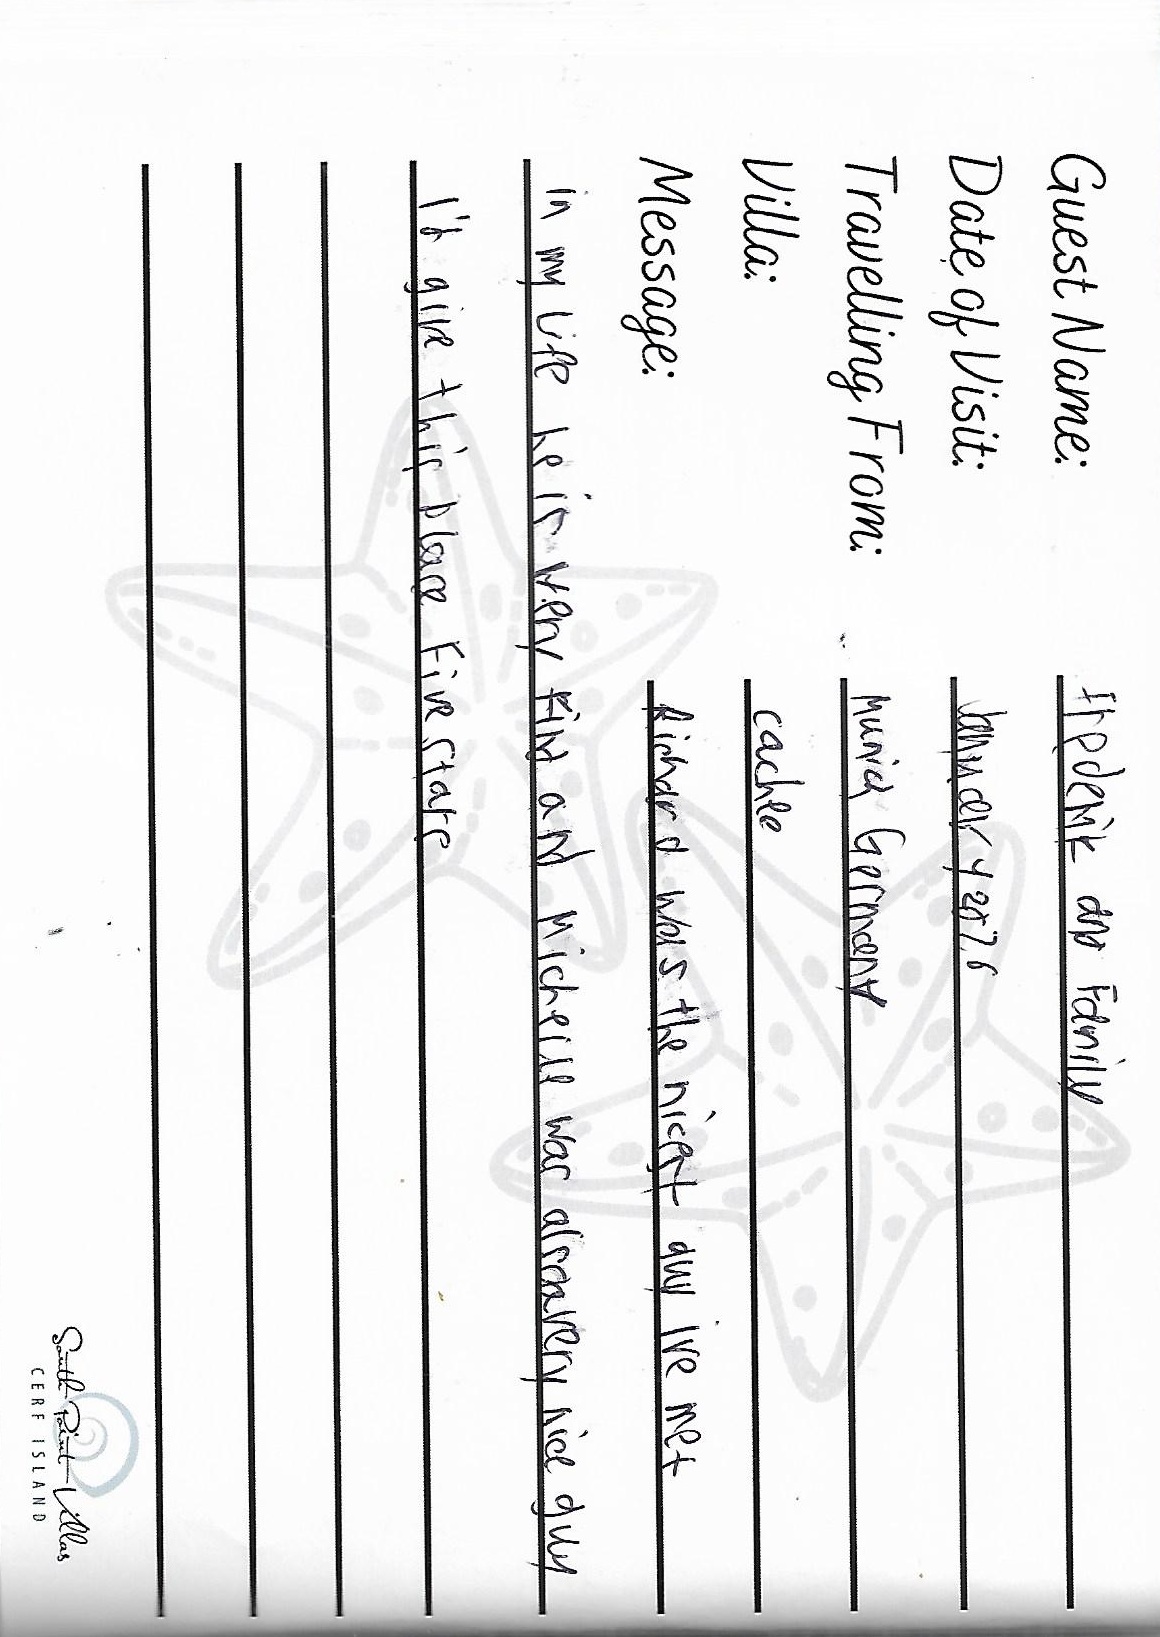 Guest Name: Frederik and Family
Date of Visit: January 2026
Travelling From: Munich Germany
Villa: cachee
Message: Richard was the nicest guy ive met
in my Life he is very kind and Micheille was also a very nice guy
I'd give this place Five stars
South Point Villas
CERF ISLAND